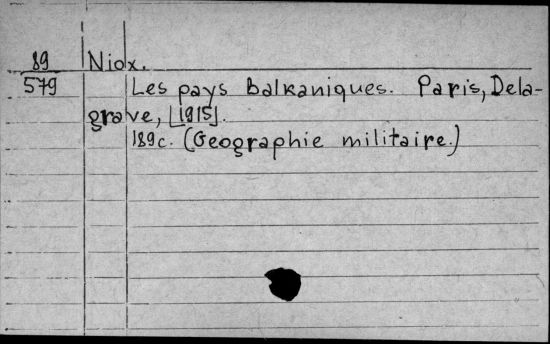 89 Niox.
579 Les pays balkaniques. Paris, Dela-
grave, [1915].
189c. (Geographie militaire.)